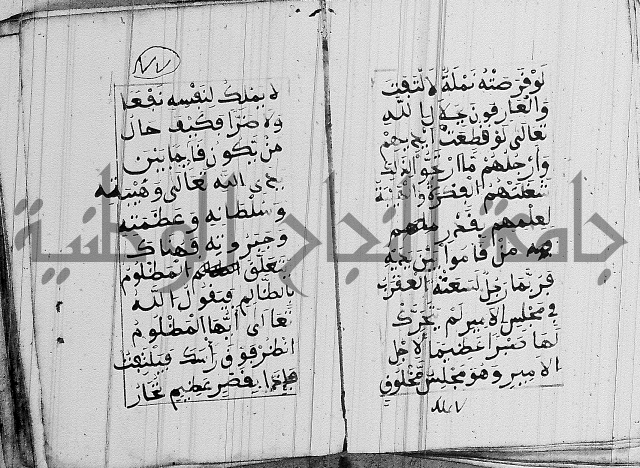 لو قرصته نملة لالتفت
والعارفون جلال الله
تعالى لو قطعت أيديهم
وأرجلهم ما
لعلمهم
من قاموا بين يديه
فربما رجل لسعته العقرب
في مجلس الأمير لم يتحرك
لها صبرا عظيما لأجل
الأمير وهو مجلس مخلوق
٧٧
لا يملك لنفسه نفعا
ولا ضرا فكيف حال
من يكون قائما بين
يدي الله تعالى وهيبته
وسلطانه وعظمته
وجبروته وهناك
تعلق المظلوم
بالظالم فيقول الله
تعالى أيها المظلوم
انظر فوق رأسك فيلتفت
قصر عظيم
جامعة النجاح الوطنية